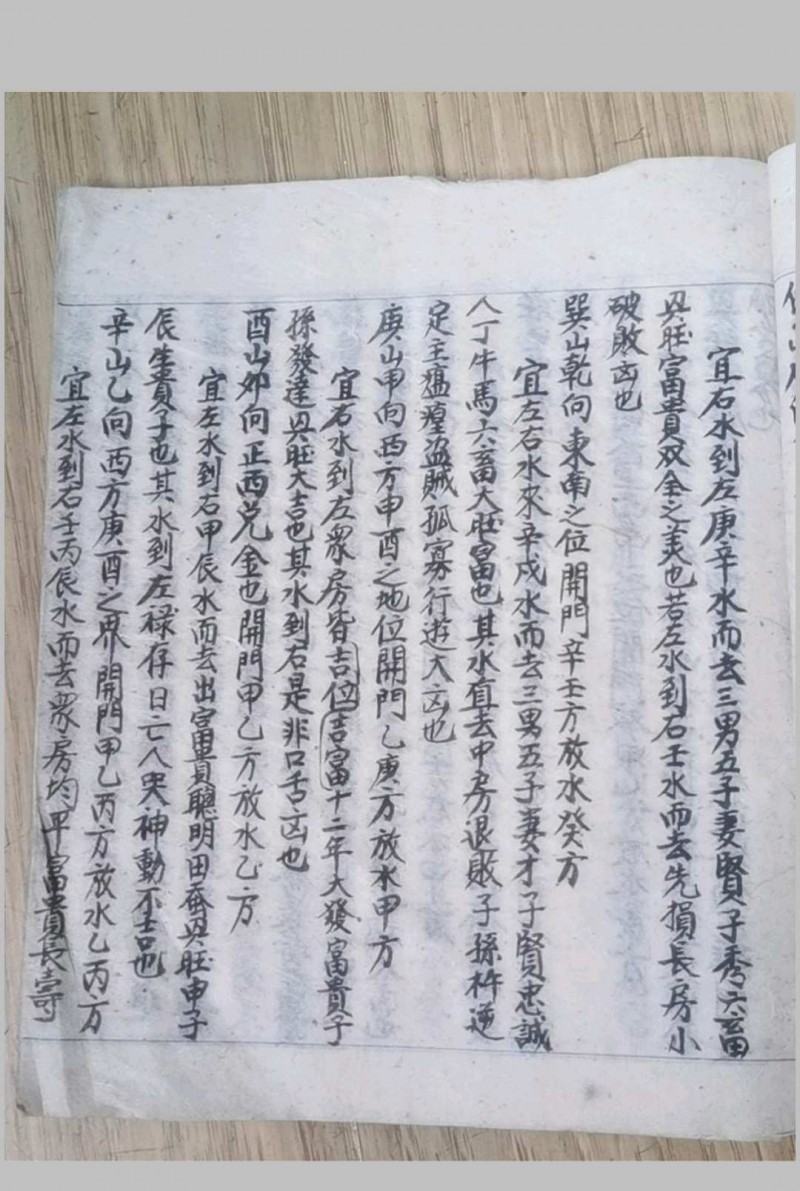 宜右水到左庚辛水而去三男五子妻賢子秀六畜
兴旺富貴双全之美也若左水到右壬水而去先損長房小
破敗凶也
巽山乾向東南之位開門辛壬方放水癸方
宜左右水來辛戌水而去三男五子妻才子賢忠誠
人丁牛馬六畜大旺富也其水直去中房退敗子孫忤逆
定主瘟瘟盜賊孤寡行遊大凶也
庚山甲向西方申酉之地位開門乙庚方放水甲方
宜右水到左衆房皆吉位吉富十二年大發富貴子
孫發達兴旺大吉也其水到右是非口舌凶也
酉山卯向正西兑金也開門甲乙方放水乙方
宜左水到右甲辰水而去出富貴聰明田蚕兴旺申子
辰生貴子也其水到左禄存日亡人哭神動不吉也
辛山乙向西方庚酉之界開門甲乙丙方放水乙丙方
宜左水到右壬丙辰水而去衆房均平富貴長壽